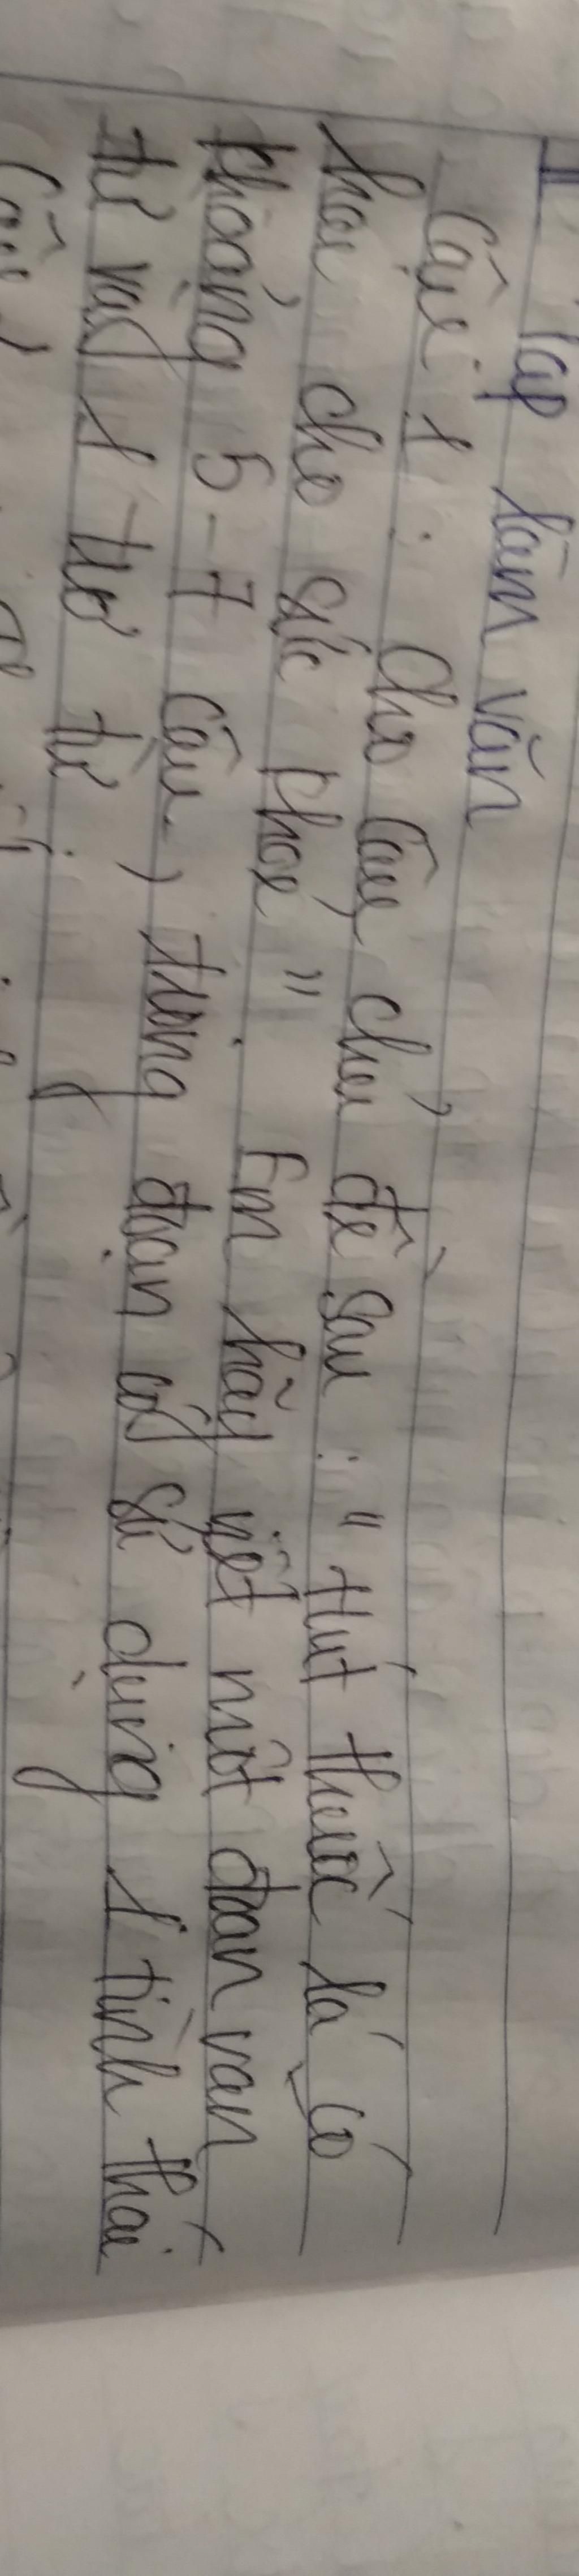 II Tập làm văn
Câu 1 : Cho câu chủ đề sau : " Hút thuốc lá có
hại cho sức khoẻ " . Em hãy viết một đoạn văn
khoảng 5-7 câu, trong đoạn có sử dụng 1 tình thái
từ và 1 trợ từ .
Câu